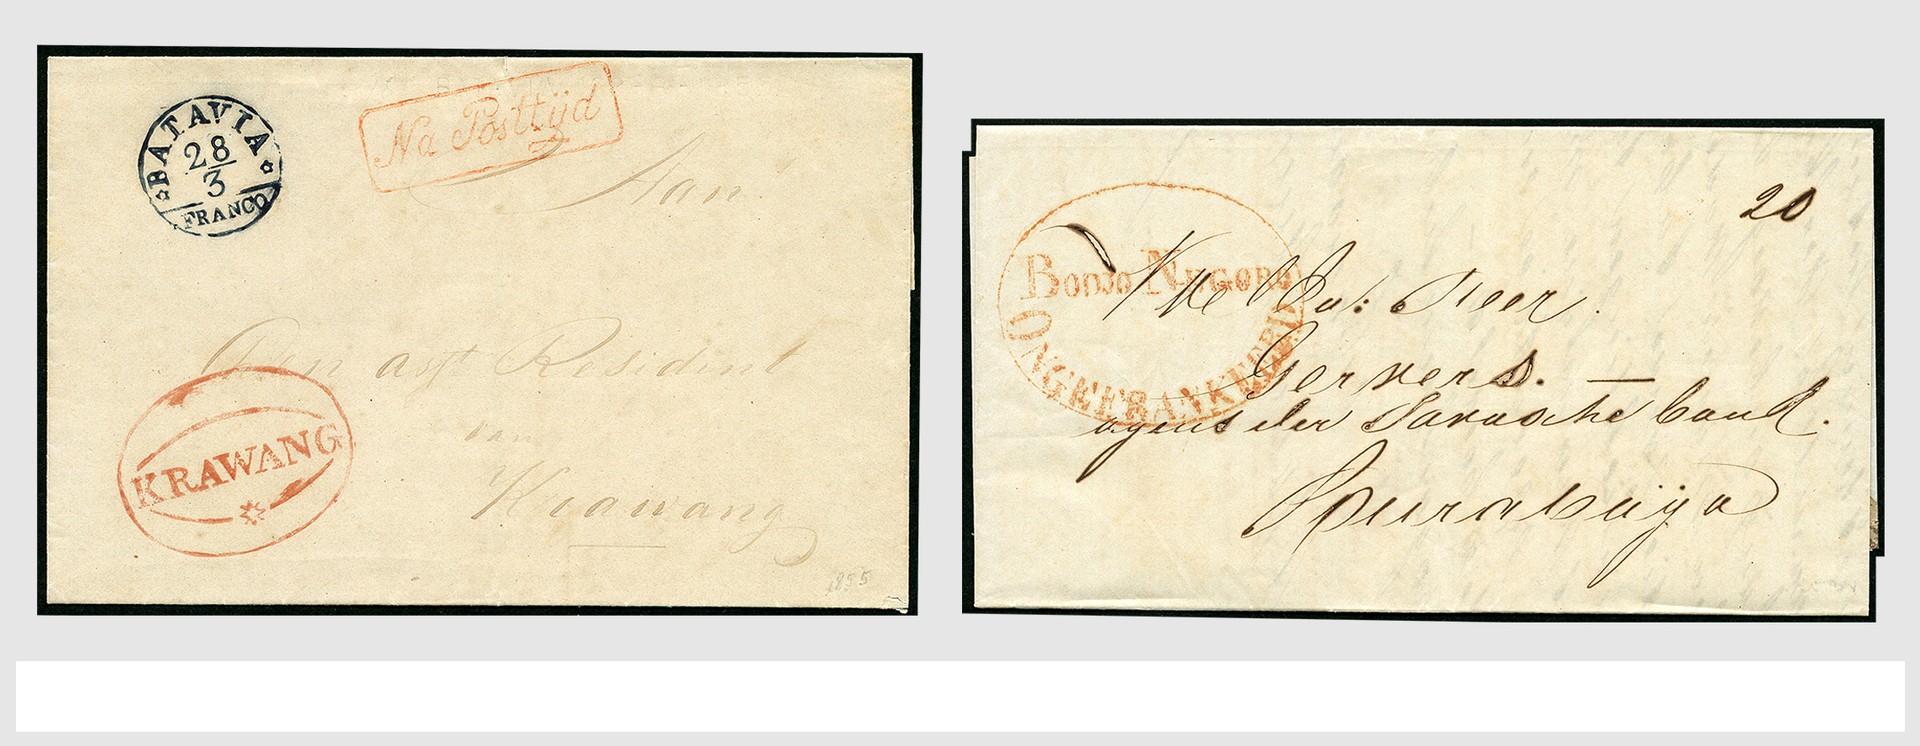 BATAVIA
28
3
FRANCO
Na Posttijd
Aan
Den asst Resident
van
Krawang
KRAWANG
1855
20
BODJO NEGORO
ONGEFRANKEERD
Heer
Gervers. —
agent der Javasche bank.
Sourabaija